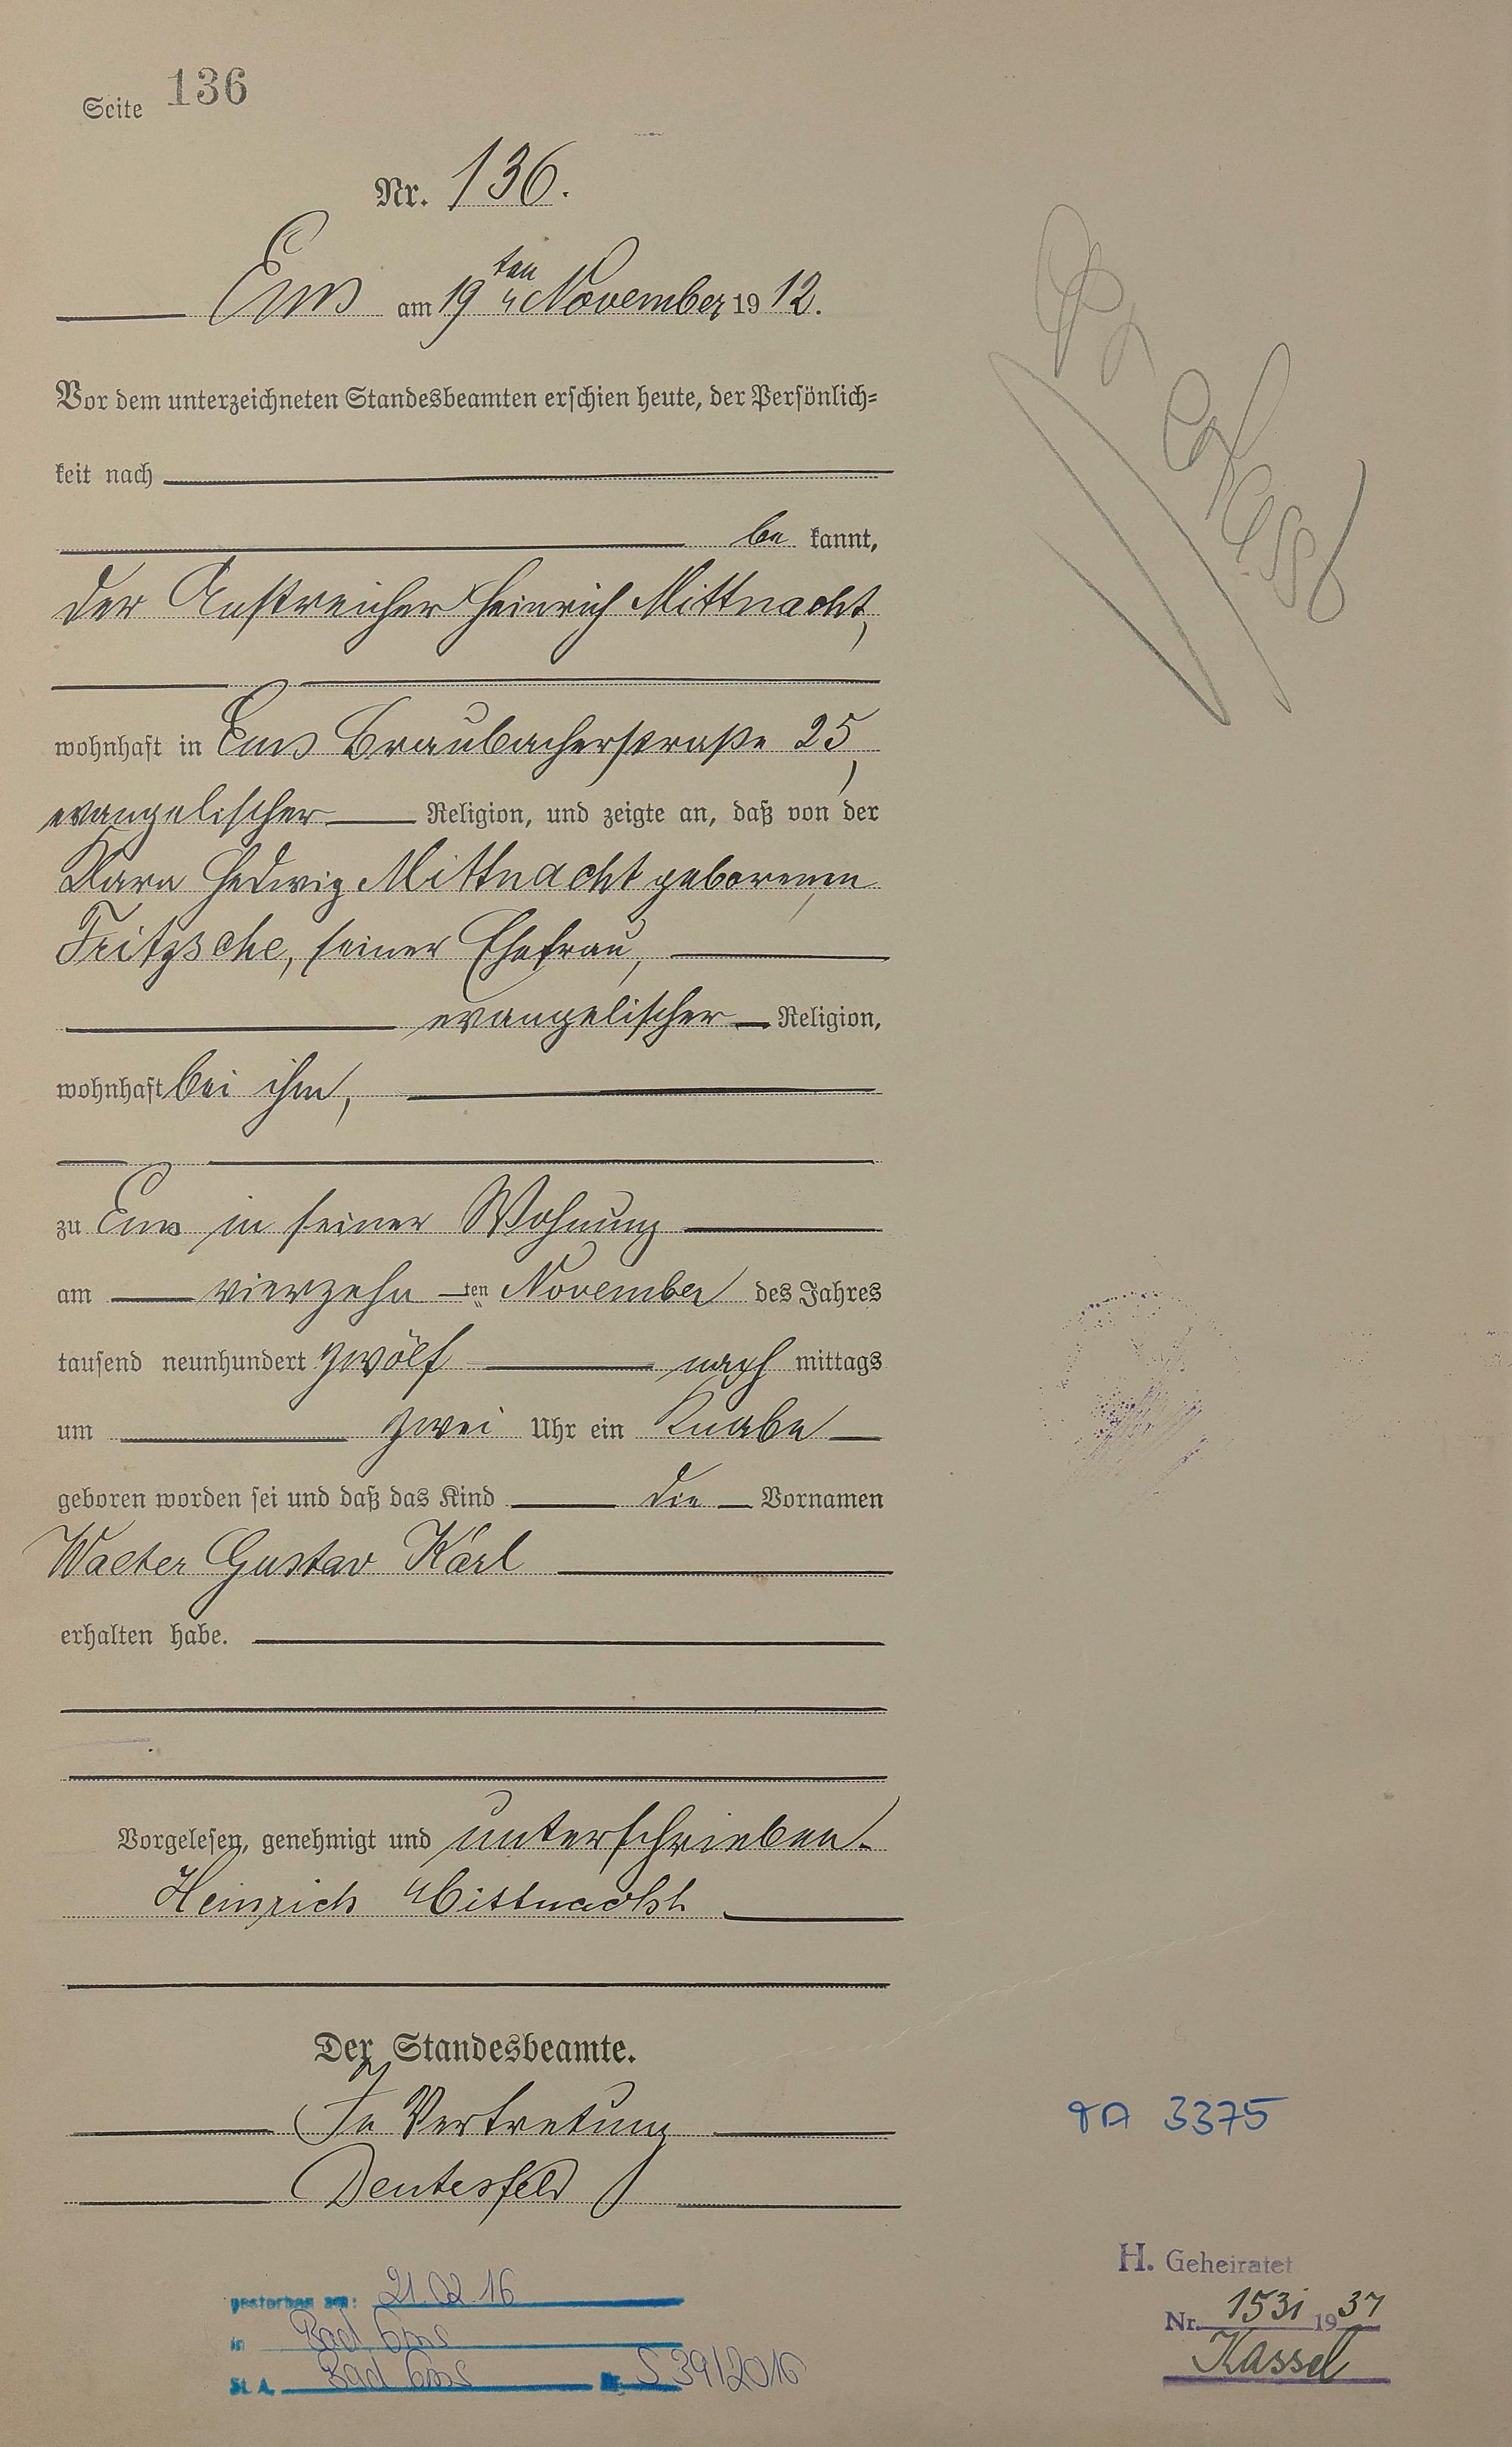 Seite 136
Nr. 136.
Ems am 19ten November 1912.
Vor dem unterzeichneten Standesbeamten erschien heute, der Persönlich=
keit nach
be kannt,
der Anstreicher Heinrich Mittnacht,
wohnhaft in Ems Braubacherstraße 25,
evangelischer Religion, und zeigte an, daß von der
Klara Hedwig Mittnacht geborenen
Fritzsche, seiner Ehefrau,
evangelischer Religion,
wohnhaft bei ihm,
zu Ems in seiner Wohnung
am vierzehn ten November des Jahres
tausend neunhundert zwölf nach mittags
um zwei Uhr ein Knabe
geboren worden sei und daß das Kind die Vornamen
Walter Gustav Karl
erhalten habe.
Vorgelesen, genehmigt und unterschrieben.
Heinrich Mittnacht
Der Standesbeamte.
In Vertretung
TA 3375
H. Geheiratet
Nr. 1531 1937
Kassel
gestorben am: 21.02.16
in Bad Ems
St. A. Bad Ems Nr. S 39/2016